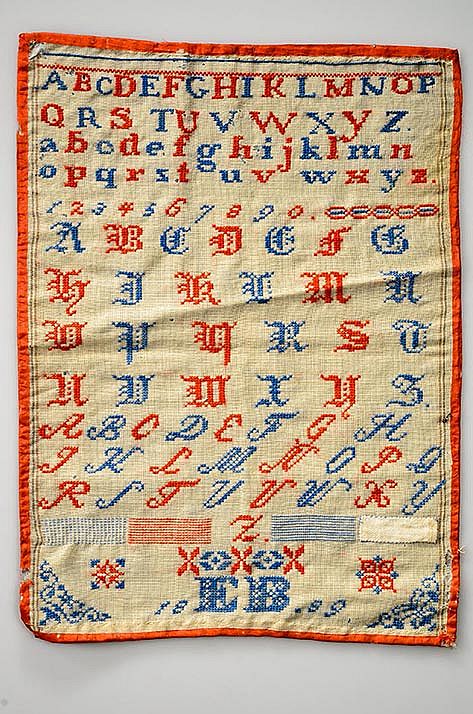 A B C D E F G H I K L M N O P
Q R S T U V W X Y Z.
a b c d e f g h i j k l m n
o p q r s t u v w x y z.
1 2 3 4 5 6 7 8 9 0.
A B C D E F G
H J K L M N
O P Q R S T
U V W X Y Z.
A B C D E F G H
J K L M N O P Q
R S T U V W X Y
Z.
18 EB 89